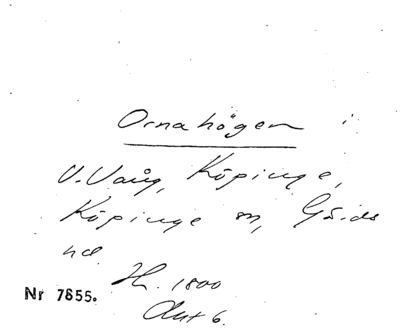 Ornahögen i
V. Vång, Köpinge,
Köpinge sn, Gärds
hd
H. 1800
Akt 6.
Nr 7655.